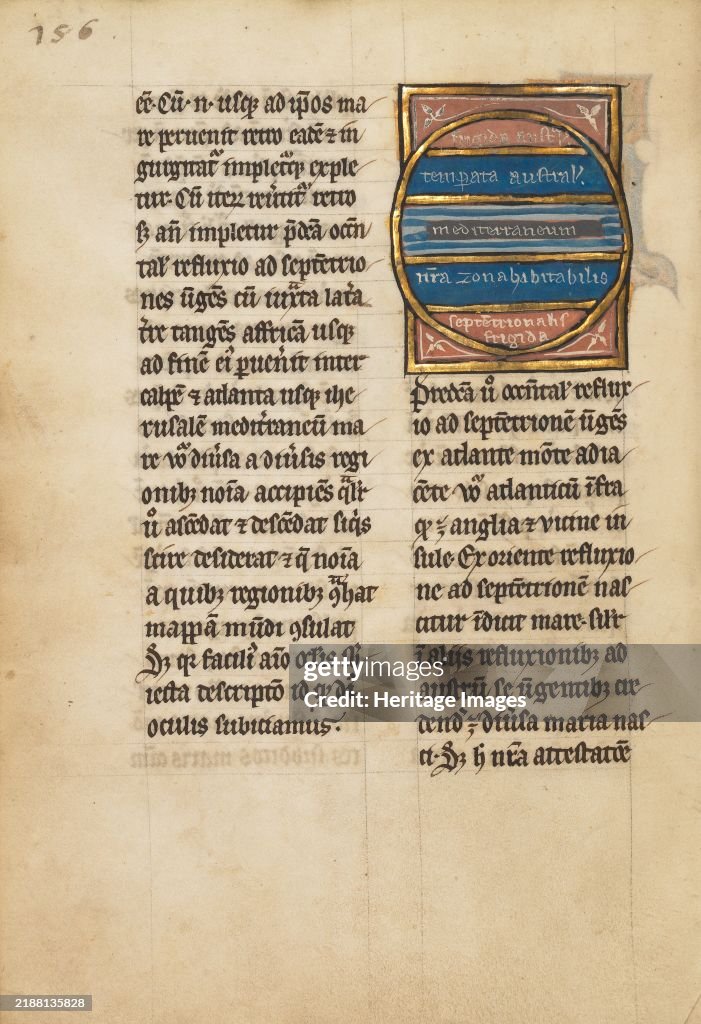 156
eē. Cū. n. usq; ad ip̄os ma
re ꝑuenit retro eadē ⁊ in
gurgitat' implet q; exple
tur. Cū iteꝝ redit' retro
sꝫ añ impletur p̄dc̄a occn̄
tal' refluxio ad septētrio
nes ūgēs cū iuxta lat'a
tr̄e tangēs affricā usq;
ad finē ei' ꝑuen'it inter
calpē ⁊ atlanta usq; ihe
rusalē medit'raneū ma
re
diu'sa a diu'sis regi
onibꝫ noīa accipiēs
ū ascēdat ⁊ descēdat siq's
scire desiderat ⁊ q̄ noīa
a quibꝫ regionibꝫ ꝯt'hat
mappā mūdi ꝯsulat
Sꝫ qꝛ facili' aīo
iecta descriptō id
oculis subiciamus.
frigida
temperata austral'.
mediterraneum
nr̄a zona habitabilis
septētrionalis
frigida
Predc̄a ū occn̄tal' reflux
io ad septētrionē ūgēs
ex atlante mōte adia
cēte
atlanticū īfra
⁊ anglia ⁊ vicine in
sule. Ex oriente refluxio
ne ad septētrionē nas
citur īdicū mare. sil'r
ī alijs refluxionibꝫ ad
austrū se ūgentibꝫ cre
dend' ⁊ diu'sa maria nas
ci. Sꝫ h nr̄a attestatōe
gettyimages®
Credit: Heritage Images
2188135828